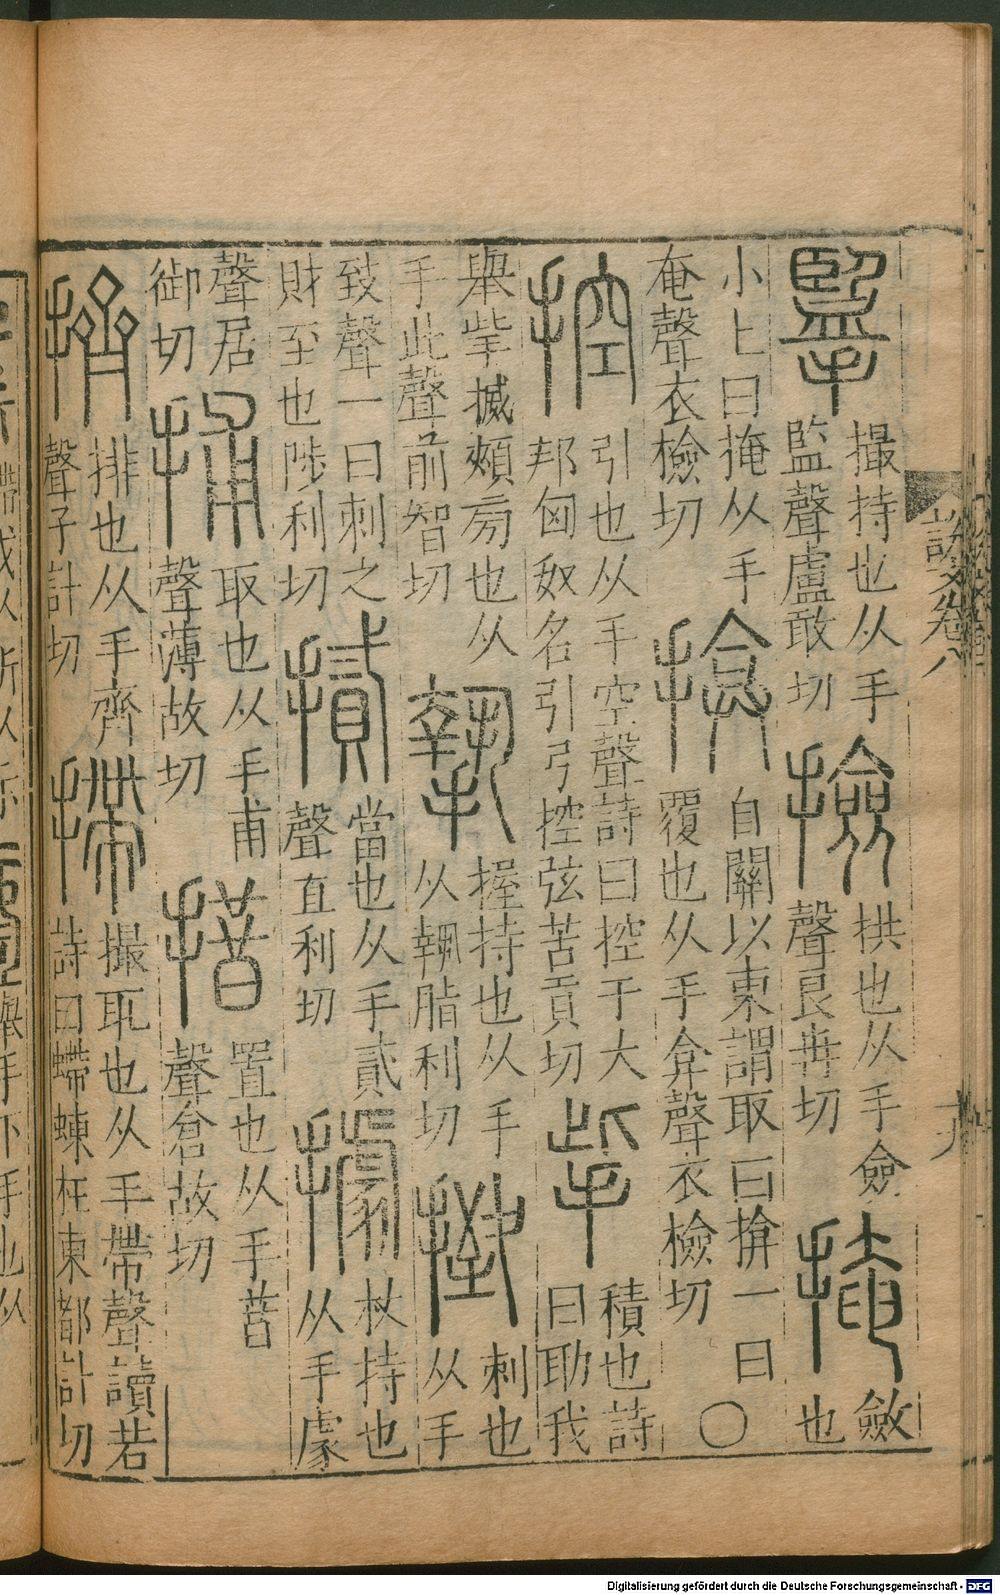 擥
撮持也从手
監聲盧敢切
撿
拱也从手僉
聲良冉切
掩
斂
也
小上曰掩从手
奄聲衣檢切
揜
自關以東謂取曰揜一曰
覆也从手弇聲衣檢切○
控
引也从手空聲詩曰控于大
邦匈奴名引弓控弦苦貢切
㧘
積也詩
曰助我
舉㧘搣頰旁也从
手此聲前智切
執
握持也从手
从執脂利切
㨖
刺也
从手
致聲一曰刺之
財至也陟利切
當也从手貳
聲直利切
據
杖持也
从手豦
聲居
御切
捕
取也从手甫
聲薄故切
措
置也从手昔
聲倉故切
擠
排也从手齊
聲子計切
摕
撮取也从手帶聲讀若
詩曰螮蝀在東都計切
說文卷八
Digitalisierung gefördert durch die Deutsche Forschungsgemeinschaft - DFG